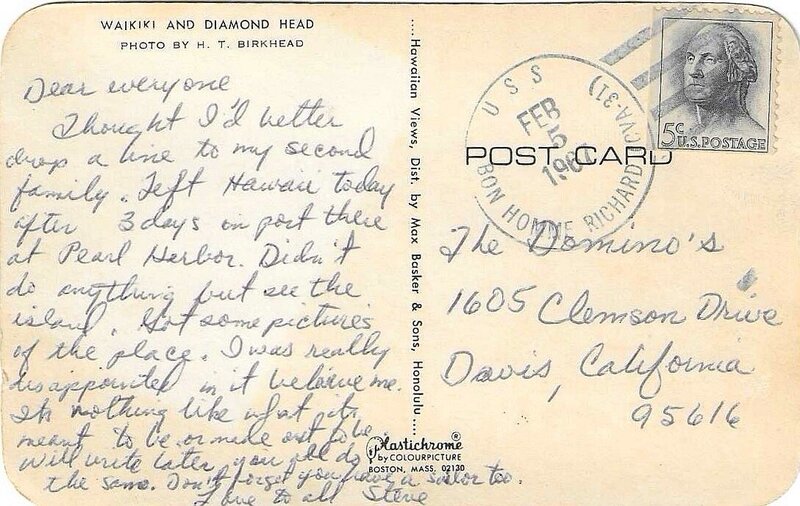 WAIKIKI AND DIAMOND HEAD
PHOTO BY H. T. BIRKHEAD
Dear everyone
Thought I'd better
drop a line to my second
family. Left Hawaii today
after 3 days in port there
at Pearl Harbor. Didn't
do anything but see the
island. Got some pictures
of the place. I was really
disappointed in it believe me.
Its nothing like what its
meant to be or made out to be.
will write later you all do
the same. Don't forget you have a sailor too.
Love to all Steve
....Hawaiian Views, Dist. by Max Basker & Sons, Honolulu....
Plastichrome®
by COLOURPICTURE
BOSTON, MASS. 02130
USS
BON HOMME RICHARD (CVA-31)
FEB
5
5c U.S. POSTAGE
POST CARD
The Domino's
1605 Clemson Drive
Davis, California
95616